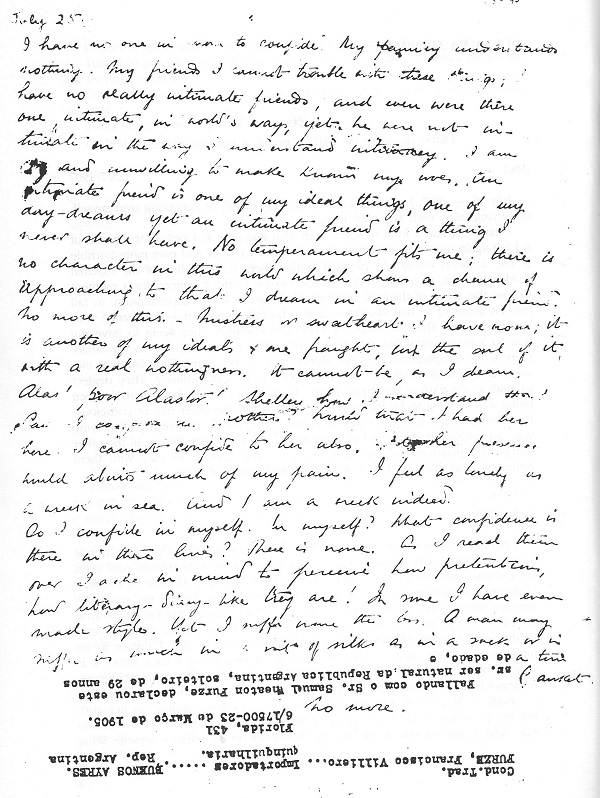 July 25.
I have no one in whom to confide. My family understands
nothing. My friends I cannot trouble with these things; I
have no really intimate friends, and even were there
one intimate, in world's ways, yet he were not in-
timate in the way I understand intimacy. I am
shy and unwilling to make known my woes. An
intimate friend is one of my ideal things, one of my
day-dreams yet an intimate friend is a thing I
never shall have. No temperament fits me; there is
no character in this world which shows a chance of
approaching to that I dream in an intimate friend.
No more of this. - Mistress or sweetheart I have none; it
is another of my ideals & one fraught, unto the soul of it,
with a real nothingness. It cannot be, as I dream.
Alas! poor Alastor! Shelley how I understand thee!
Can I confide in mother? Would that I had her
here. I cannot confide in her also, her presence
would abate much of my pain. I feel as lonely as
a wreck in sea. And I am a wreck indeed.
So I confide in myself. In myself? What confidence is
there in these lines? There is none. As I read them
over I ache in mind to perceive how pretentious,
how literary-diary-like they are! In some I have even
made style. Yet I suffer none the less. A man may
suffer as much in a suit of silks as in a sack or in
a torn
No more.
Cond.Trad.
FURZE, Francisco Villiero... Importadores ......BUENOS AYRES.
quinquilharia. Rep. Argentina
Florida, 431
6/17500-23 de Março de 1905.
Fallando com o Sr. Samuel Wheaton Furze, declarou este
sr. ser natural da Republica Argentina, solteiro, de 29 annos
de edade, e